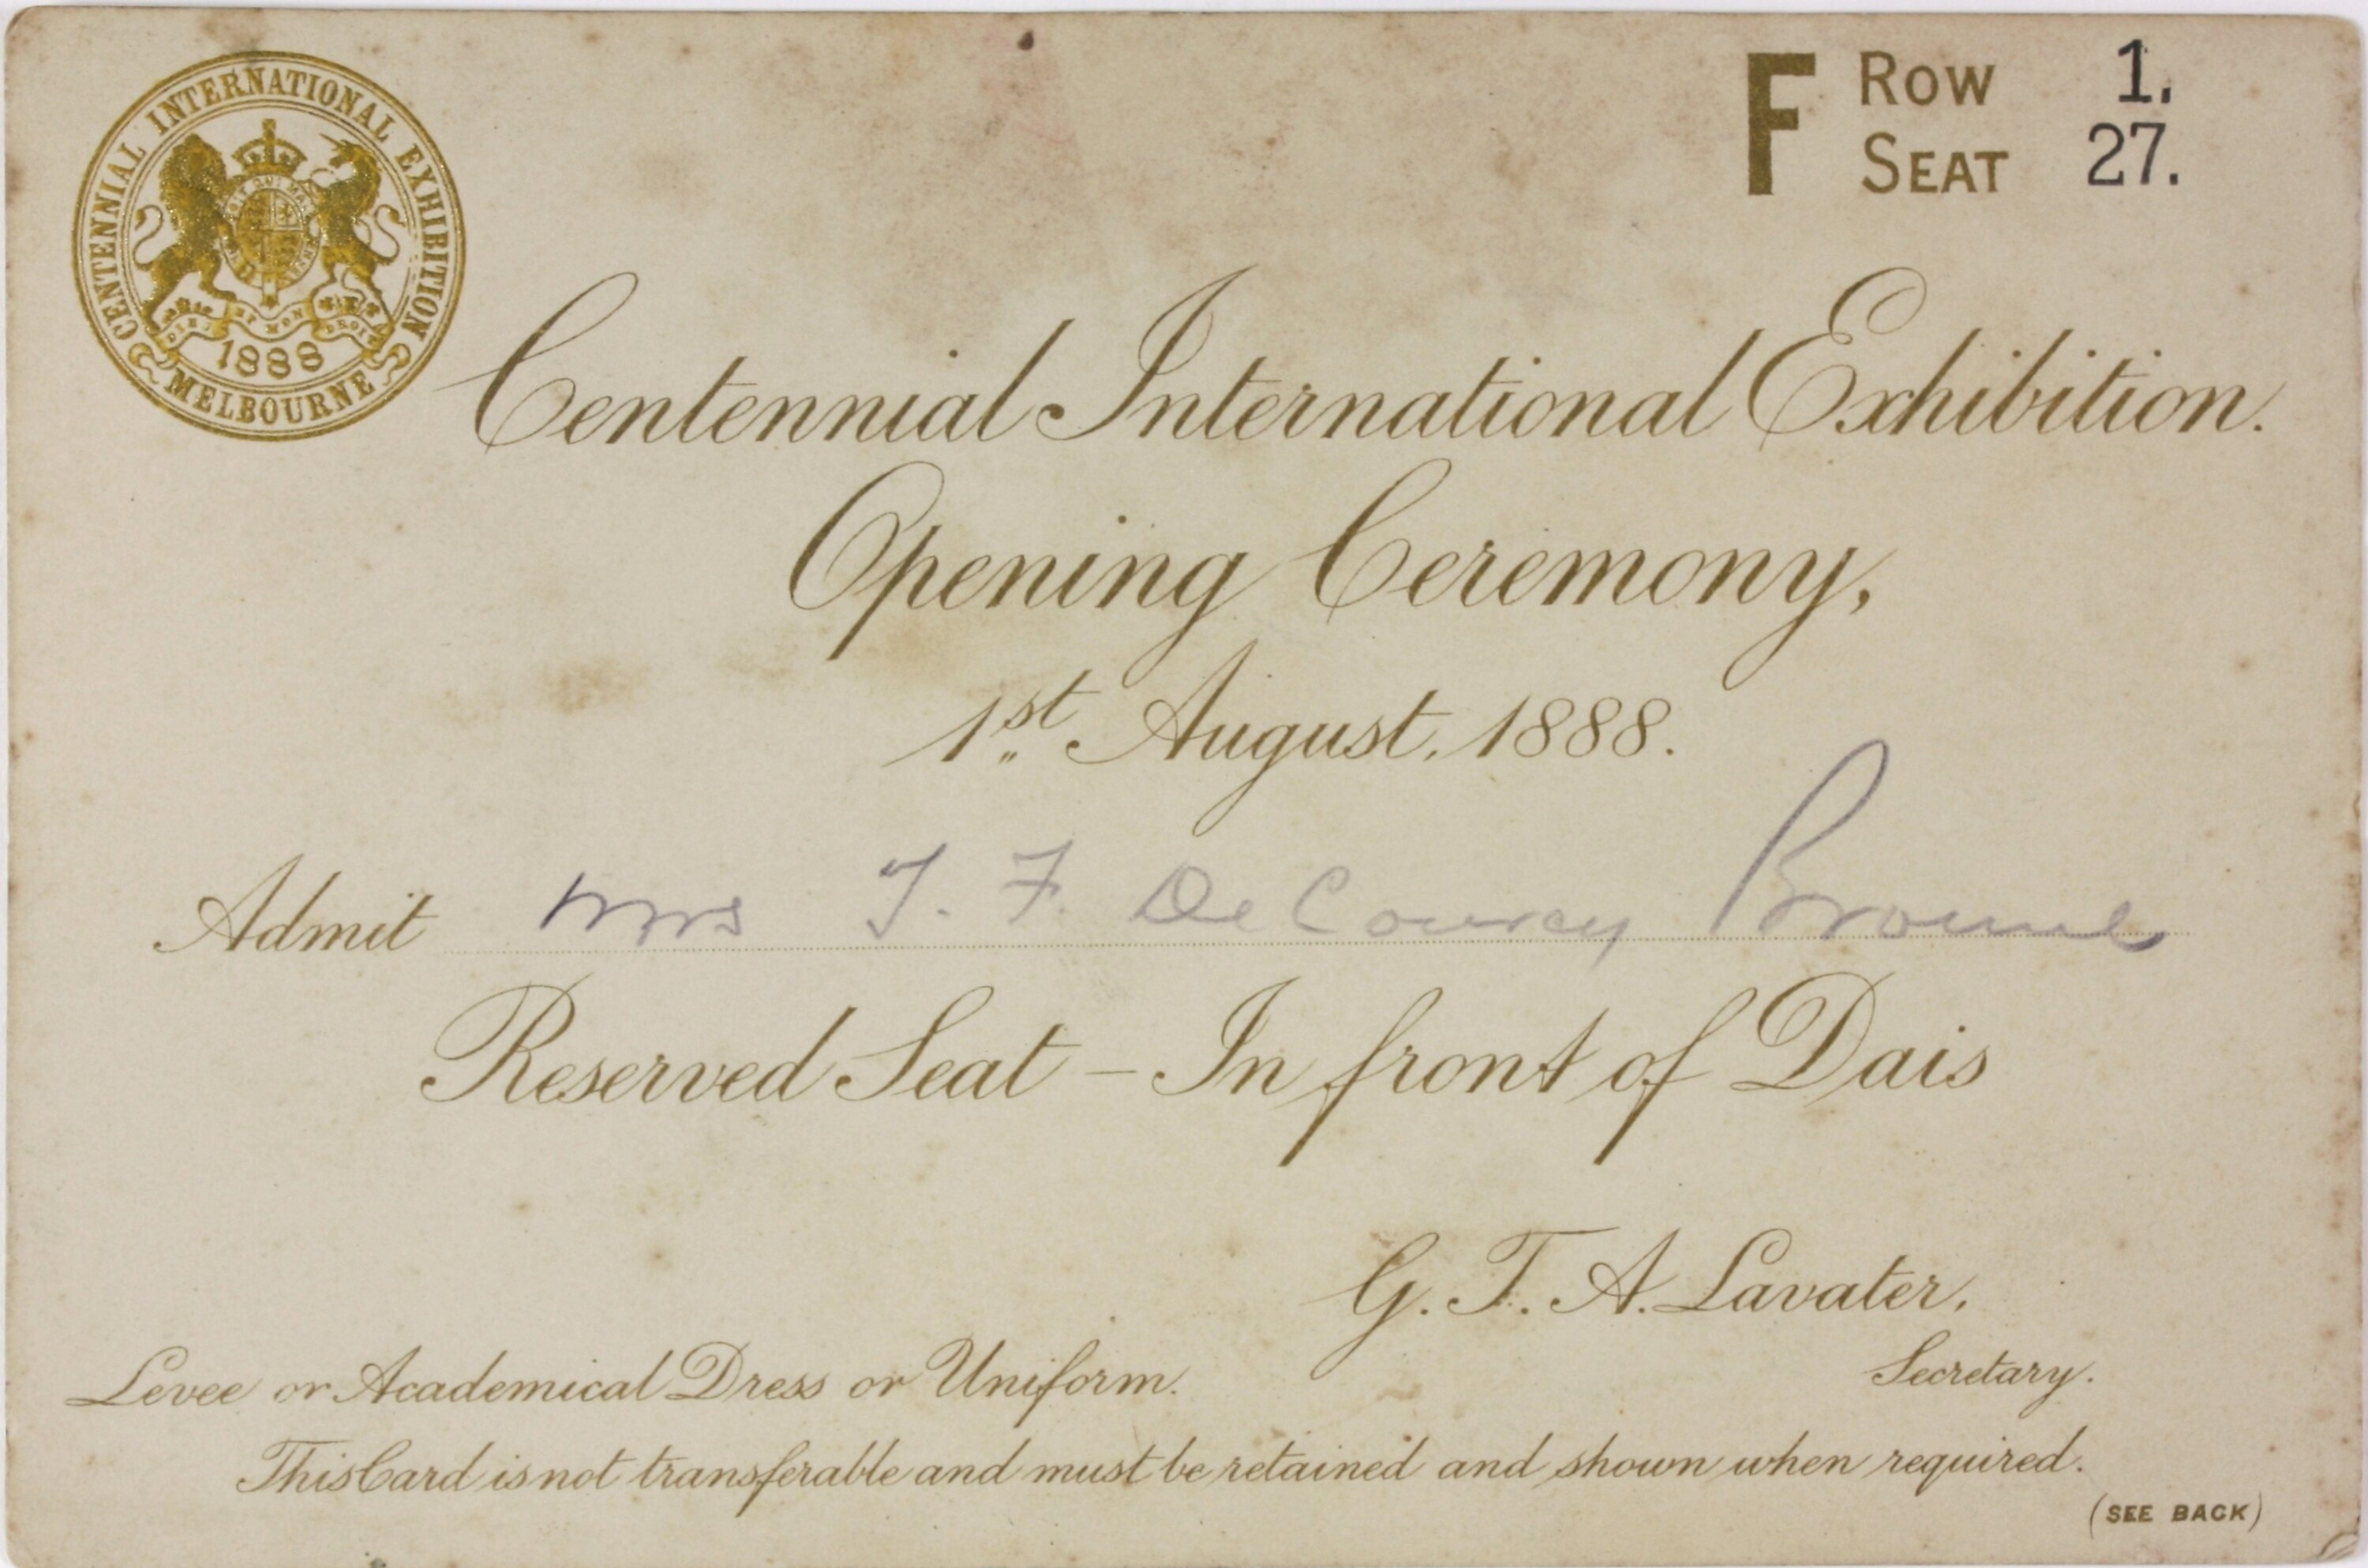 CENTENNIAL INTERNATIONAL EXHIBITION
DIEU ET MON DROIT
1888
MELBOURNE
F Row 1.
SEAT 27.
Centennial International Exhibition.
Opening Ceremony,
1st August, 1888.
Admit Mrs T. F. De Courcy Browne
Reserved Seat – In front of Dais
G. T. A. Lavater,
Secretary.
Levee or Academical Dress or Uniform.
This Card is not transferable and must be retained and shown when required.
(SEE BACK)